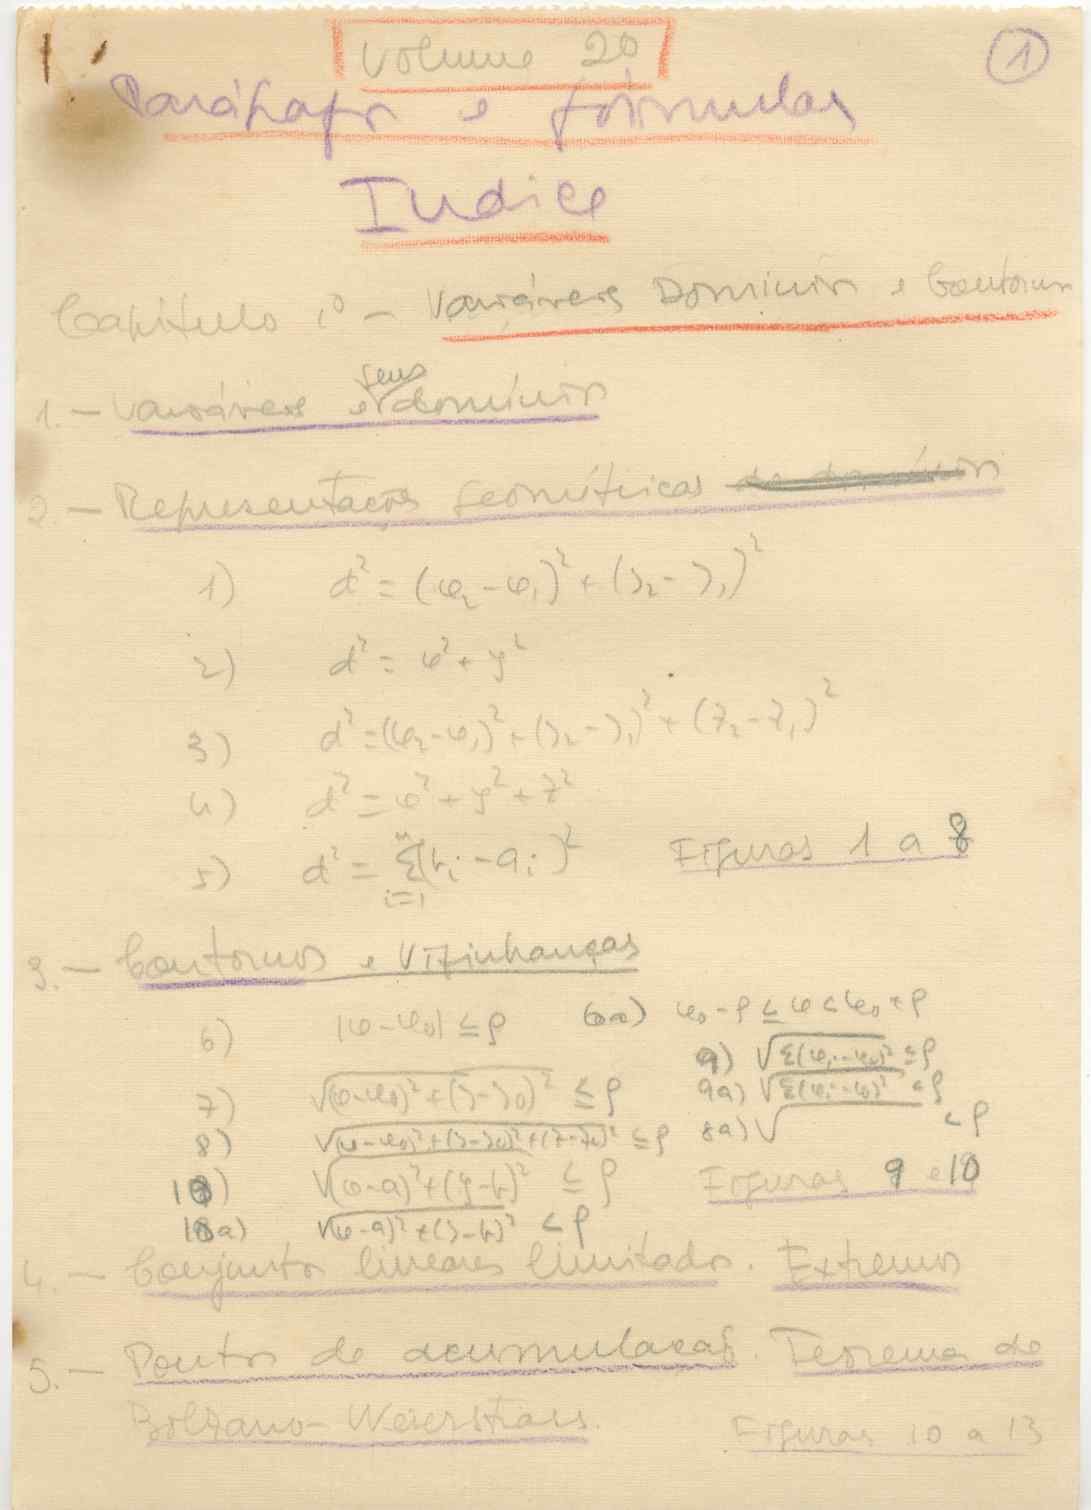 Volume 2º
1
Parágrafos e fórmulas
Indice
Capítulo 1º - Variáveis Domínios e Contornos
1. - Variáveis e seus domínios
2. - Representações geométricas
1) d² = (x₂ - x₁)² + (y₂ - y₁)²
2) d² = x² + y²
3) d² = (x₂ - x₁)² + (y₂ - y₁)² + (z₂ - z₁)²
4) d² = x² + y² + z²
5) d² = Σ(bᵢ - aᵢ)² Figuras 1 a 8
n
i=1
3. - Contornos e Vizinhanças
6) |x - x₀| ≤ ρ 6a) x₀ - ρ ≤ x ≤ x₀ + ρ
9) √Σ(xᵢ - x₀)² ≤ ρ
7) √(x - x₀)² + (y - y₀)² ≤ ρ 9a) √Σ(xᵢ - x₀)² < ρ
8) √(x - x₀)² + (y - y₀)² + (z - z₀)² ≤ ρ 8a) √ < ρ
10) √(x - a)² + (y - b)² ≤ ρ Figuras 9 e 10
10a) √(x - a)² + (y - b)² < ρ
4. - Conjuntos lineares limitados. Extremos
5. - Pontos de acumulação. Teorema de
Bolzano-Weierstrass. Figuras 10 a 13